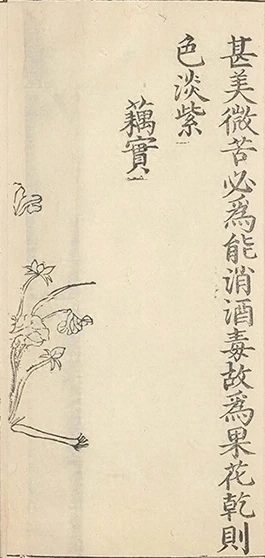 甚美微苦必爲能消酒毒故爲果花乾則
色淡紫
藕實